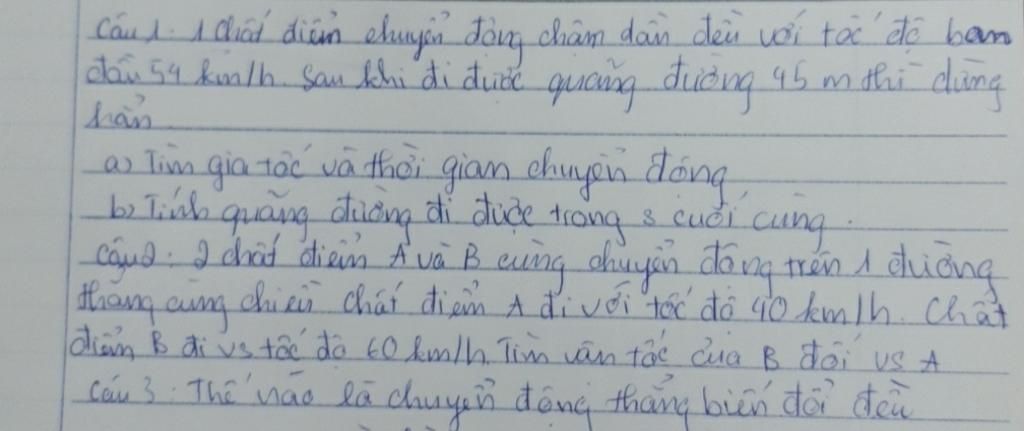 Câu 1: 1 chất điểm chuyển động chậm dần đều với tốc độ ban
đầu 54 km/h. Sau khi đi được quãng đường 45 m thì dừng
hẳn
a) Tìm gia tốc và thời gian chuyển động
b) Tính quãng đường đi được trong s cuối cùng.
Câu 2: 2 chất điểm A và B cùng chuyển động trên 1 đường
thẳng cùng chiều chất điểm A đi với tốc độ 40 km/h. Chất
điểm B đi vs tốc độ 60 km/h. Tìm vận tốc của B đối vs A
Câu 3: Thế nào là chuyển động thẳng biến đổi đều